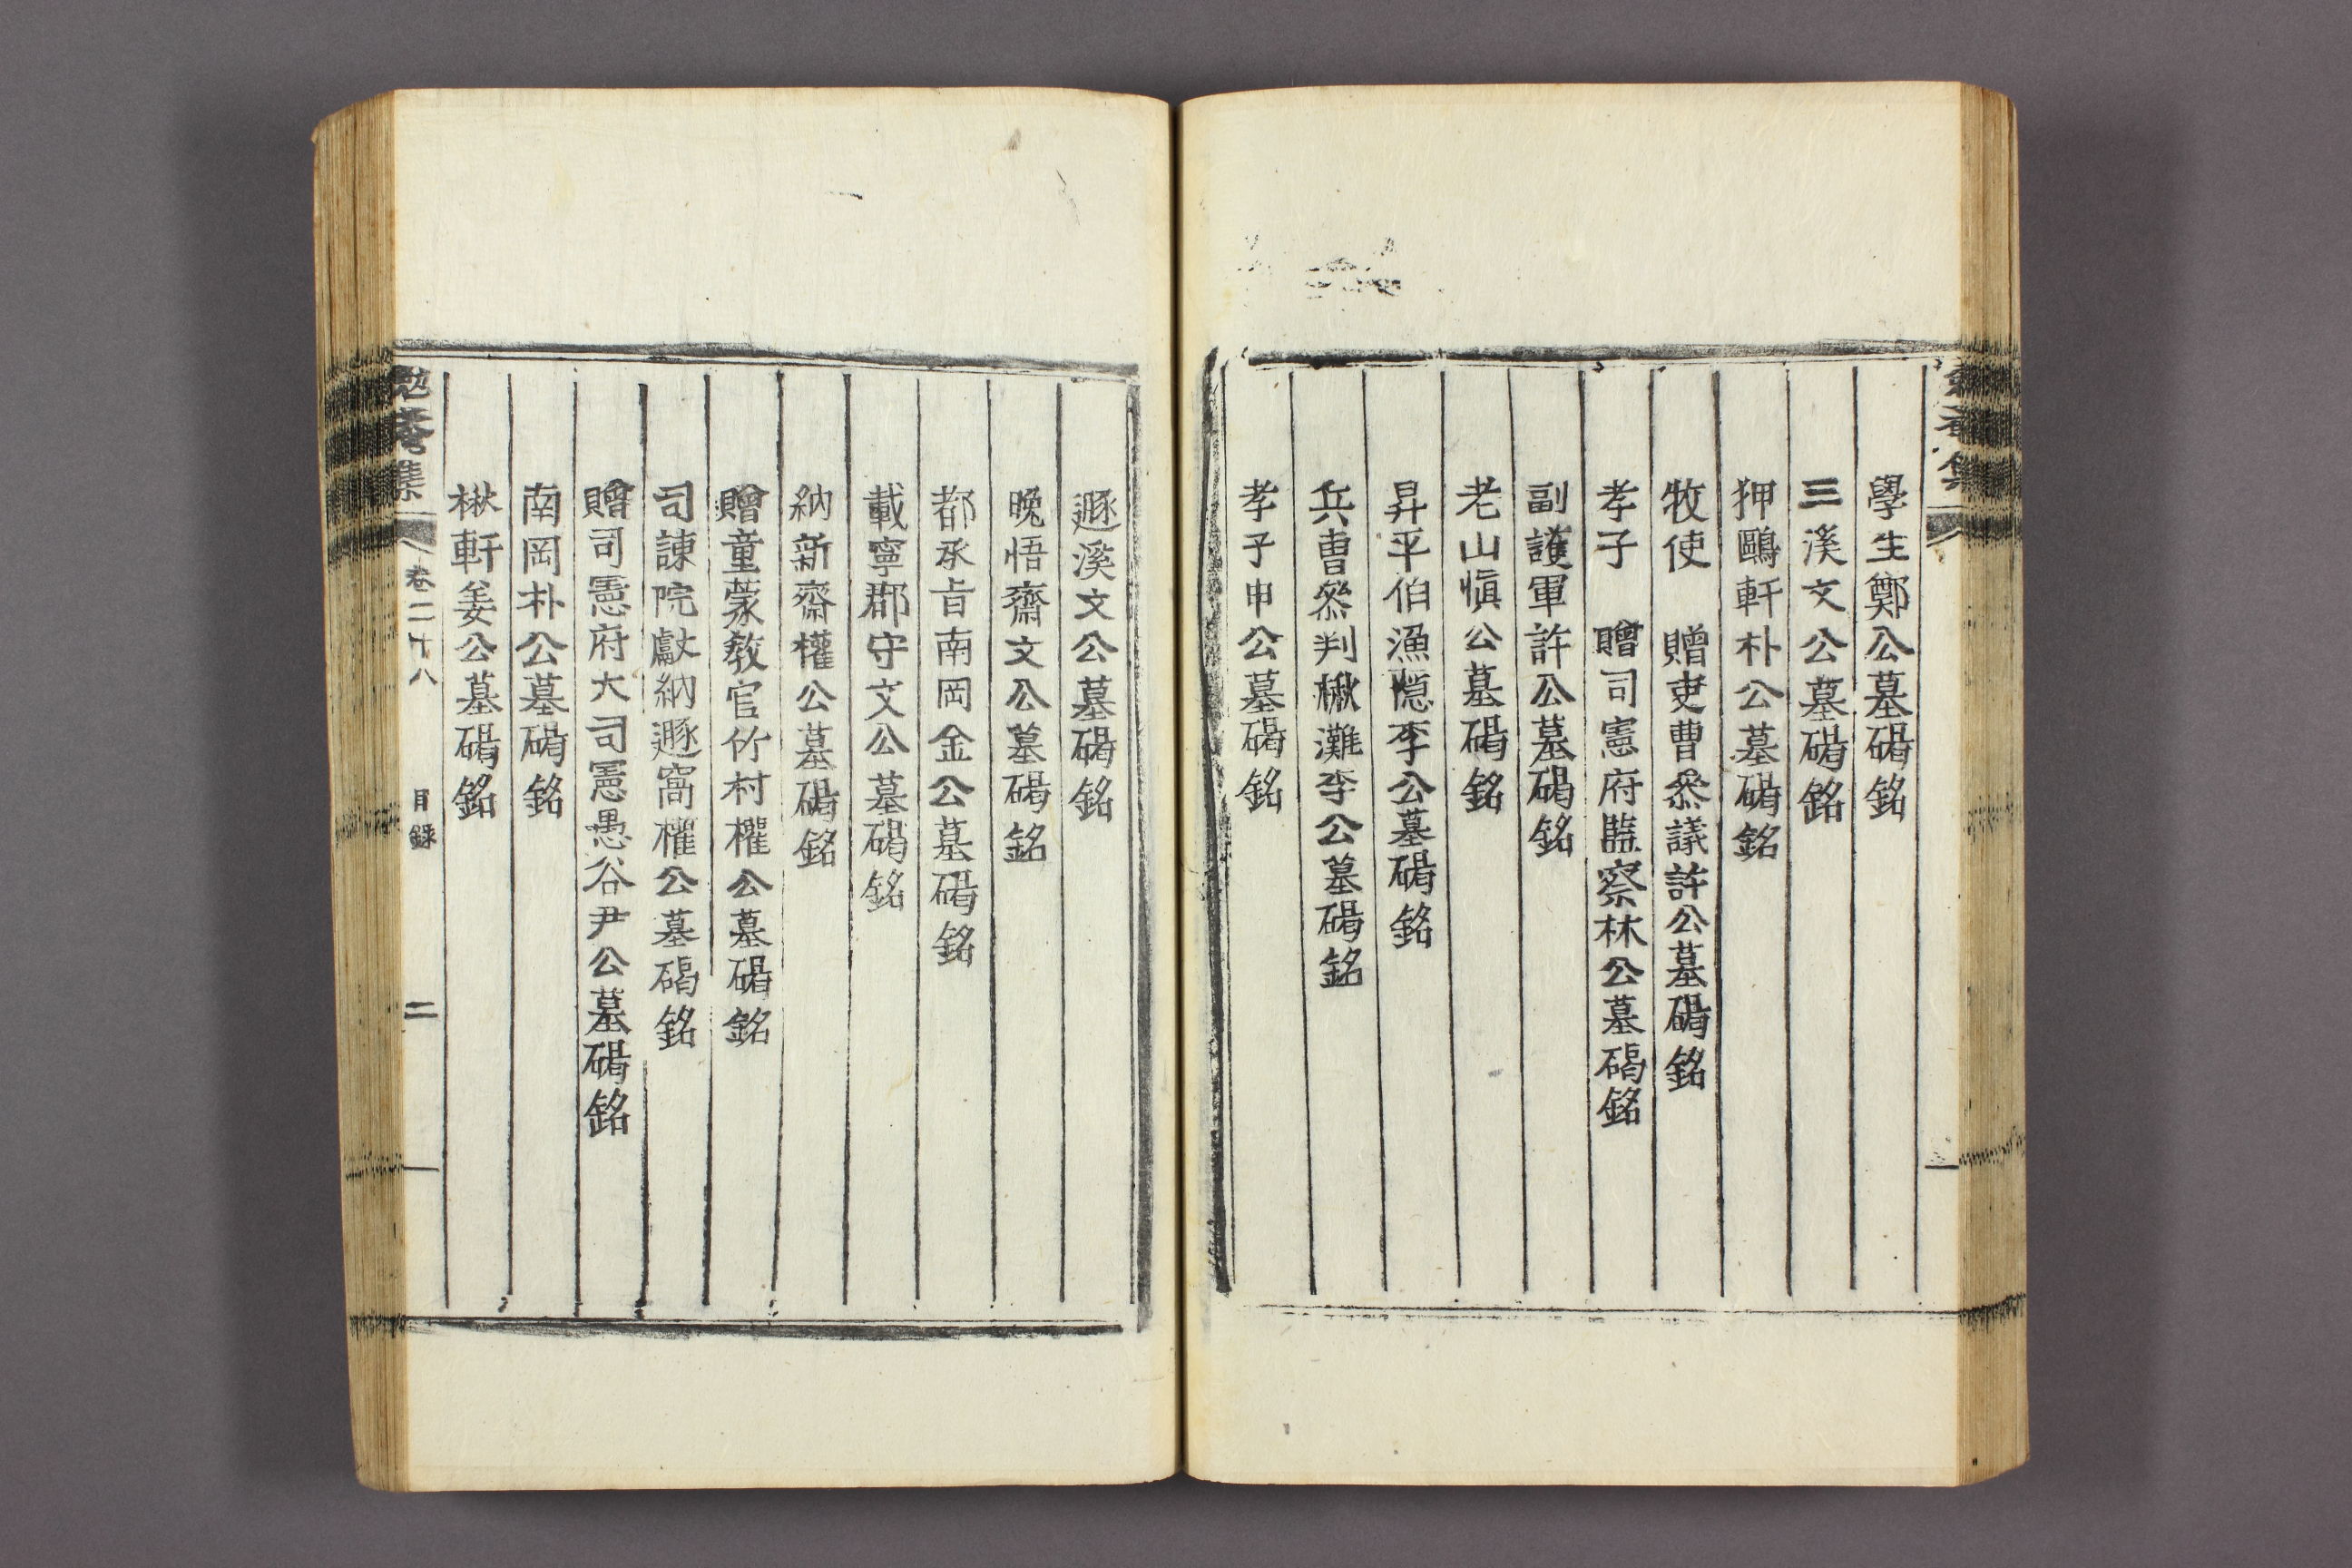 學生鄭公墓碣銘
三溪文公墓碣銘
狎鷗軒朴公墓碣銘
牧使 贈吏曹叅議許公墓碣銘
孝子 贈司憲府監察林公墓碣銘
副護軍許公墓碣銘
老山愼公墓碣銘
昇平伯漁隱李公墓碣銘
兵曹叅判楸灘李公墓碣銘
孝子申公墓碣銘
遯溪文公墓碣銘
晚悟齋文公墓碣銘
都承旨南岡金公墓碣銘
載寧郡守文公墓碣銘
納新齋權公墓碣銘
贈童蒙敎官竹村權公墓碣銘
司諫院獻納遯窩權公墓碣銘
贈司憲府大司憲愚谷尹公墓碣銘
南岡朴公墓碣銘
楸軒姜公墓碣銘
勉菴集 卷二十八 目録 二